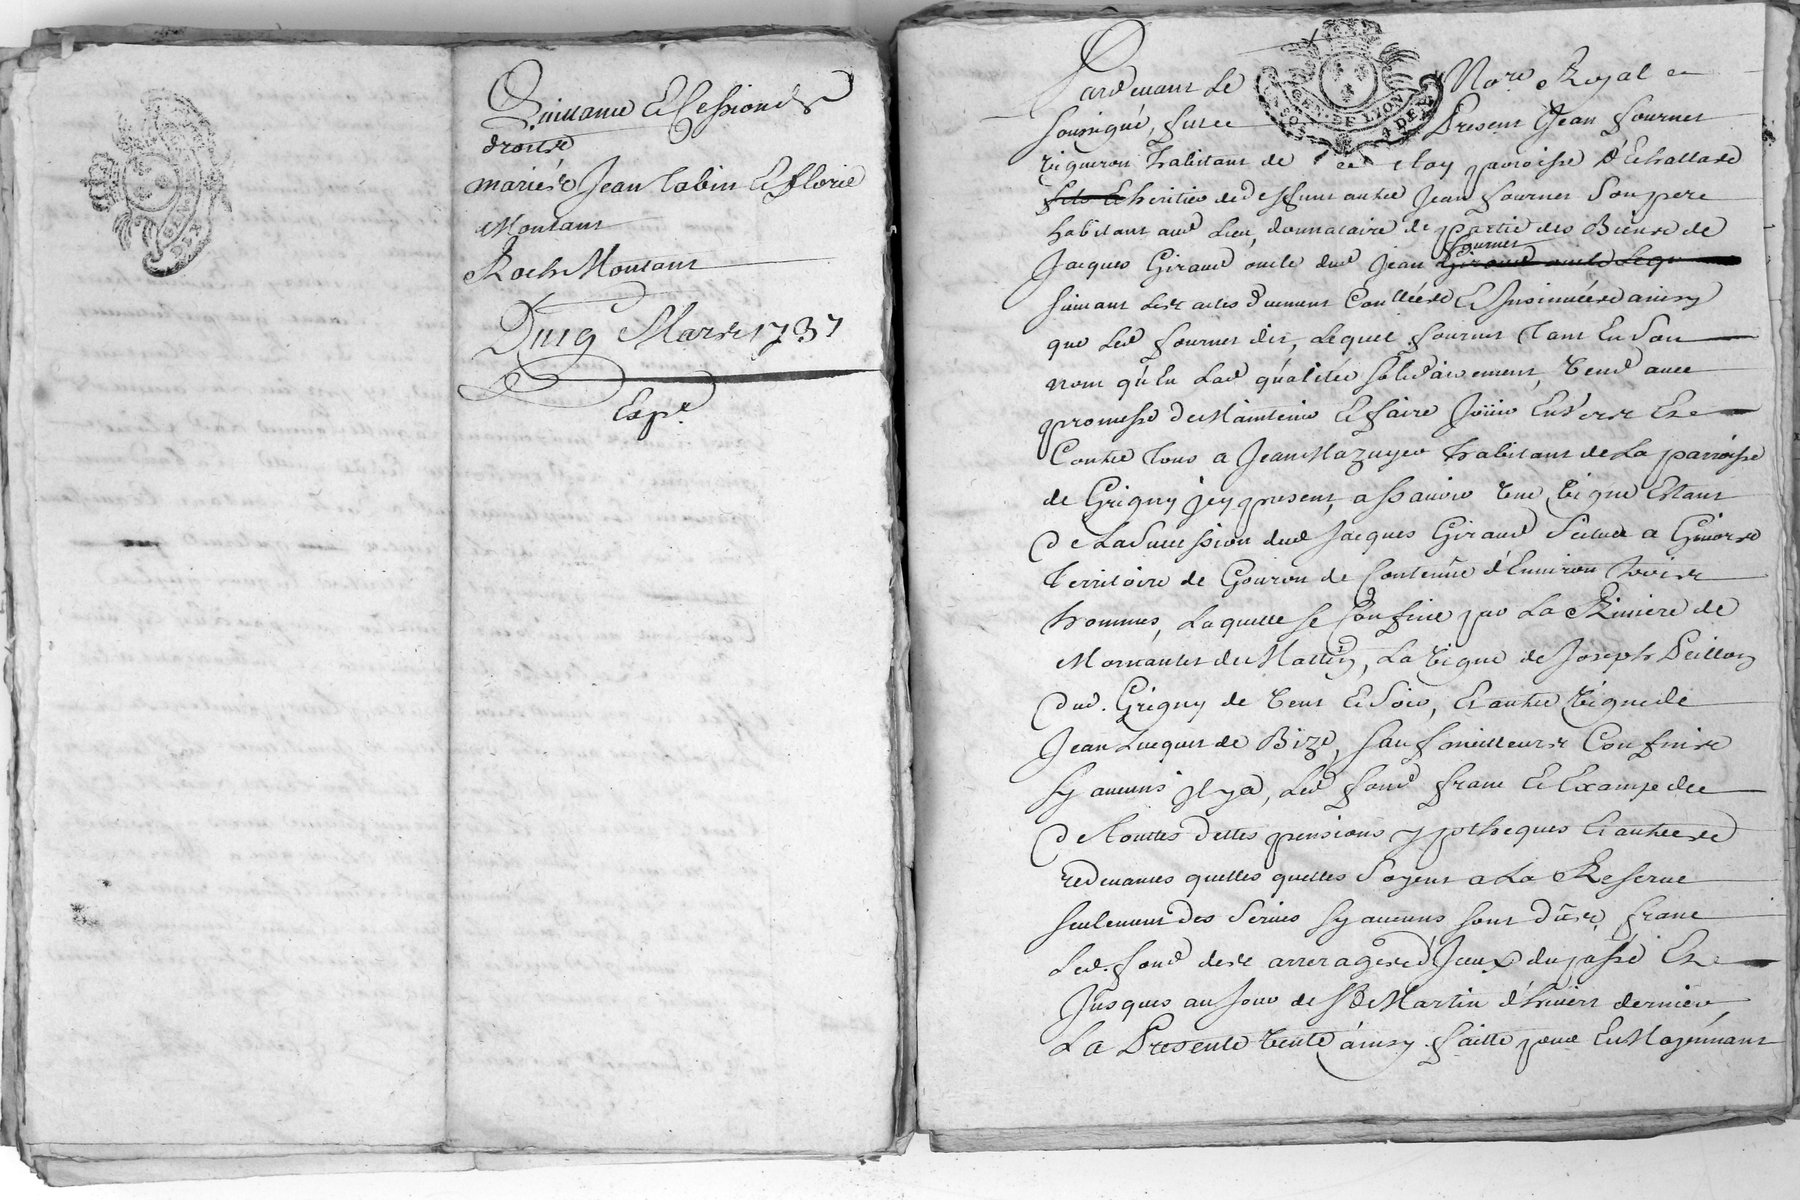 Quittance & Cession de
droits
mariés Jean Tabin & Florie
Montant
Roch Montant
Du 19 Mars 1737
Exp.é
GEN. DE LYON
Pardevant Le No.re Royal
Soussigné, fut Present Jean fournet
vigneron habitant de paroisse D'Echallas
fils & heritier de deffunt autre Jean fournet Son pere
habitant aud. Lieu, donnataire de partie des Biens de
Jacques Giraud oncle dud. Jean fournet
Suivant Les actes duement Conllés & Insinués ainsy
que Led. fournet dit, Lequel fournet Tant En Son
nom qu'En Lad. qualité Solidairement, Vend avec
promesse de Maintenir & faire Joüir Envers Et
Contre Tous a Jean Mazuyer habitant de La parroisse
de Grigny jcy present, assavoir Une Vigne Estant
de La Succession dud. Jacques Giraud Scitué a Givors
Territoire de Gouron de Contenüe d'Environ Trois
hommes, Laquelle Se Confine par La Riviere de
Mornantet de Mattin, La Vigne de Joseph Peillon
dud. Grigny de Vent & Soir, Et autre Vigne de
Jean Lucquet de Bize, Sauf meilleurs Confins
Sy aucuns jl y a, Led. fond franc & Exampt de
de Touttes dettes pensions ypotheques Et autres
redevances quelles quelles Soyent a La Reserve
Seulement des Servis Sy aucuns Sont dûs, franc
Led. fond des arrerages d'Jceux du passé Et
Jusques au Jour de St Martin d'hivert dernier
La Presente Vente ainsy faitte pour & Moyennant